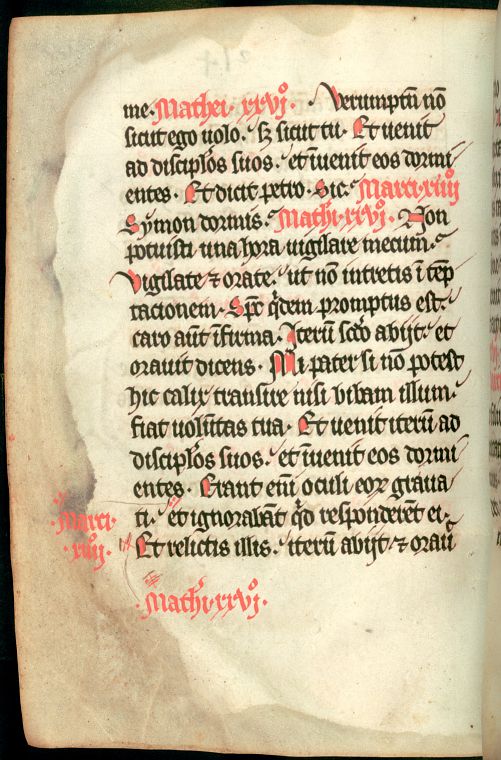 me. Mathei. xxvjº. Verumptn̄ nō
sicut ego uolo. sꝫ sicut tu. Et uenit
ad discip̄los suos. et īuenit eos dormi
entes. Et dicit petro. Sic. Marci. xiiij
Symon dormis. Math̄i. xxvjº. Non
potuisti una hora uigilare mecum.
Vigilate ⁊ orate. ut nō intretis ī tēp
tacionem. Sp̄c q̄dem promptus est.
caro aūt īfirma. Iterū scd̄o abijt. et
orauit dicens. Mi pater si nō potest
hic calix transire nisi bibam illum.
fiat uolūtas tua. Et uenit iterū ad
discip̄los suos. et īuenit eos dormi
entes. Erant em̄ oculi eoꝝ graua
ti. et ignorabāt qͦd responderēt ei.
Et relictis illis. iterū abijt. ⁊ orauī
Marci.
xiiij.
Math̄i. xxvjº.